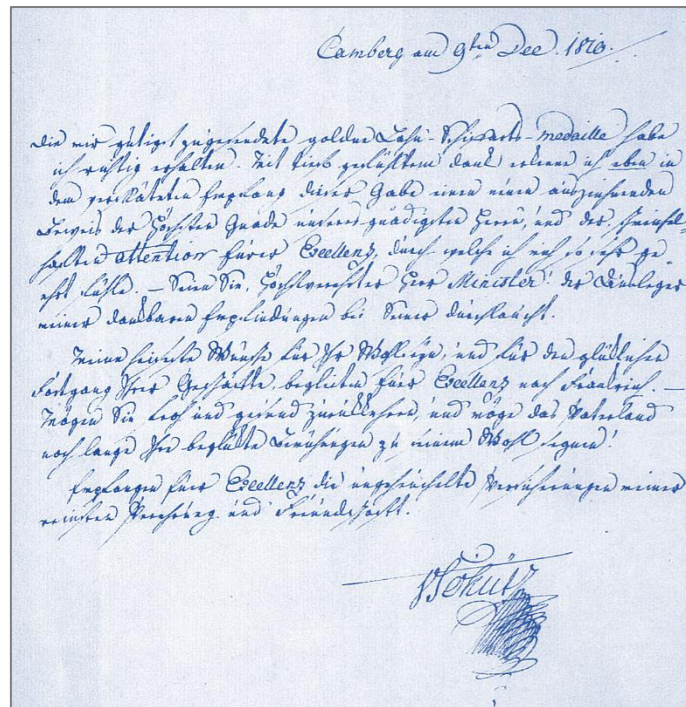 Camberg am 9ten Dec. 1810.
Die mir gütigst zugesendete goldne Lahn-Schiffarts-medaille habe
ich richtig erhalten. Mit tief gefühltem Dank erkene ich eben in
dem verspäteten Empfang dieser Gabe einen auszeichnenden
Beweis der höchsten Gnade unseres gnädigsten Herrn, und der
haften attention Eurer Excellenz, durch welche ich mich so sehr ge-
ehrt fühle. – Seien Sie, Hochverehrter Herr Minister! der Ausleger
meiner dankbaren Empfindungen bei Seiner Durchlaucht.
Meine heiseste Wünsche für Ihr Wohlseyn, und für den glücklichen
Fortgang Ihrer Geschäfte begleiten Eure Excellenz nach Frankreich. –
Mögen Sie froh und gesund zurückkehren, und möge das Vaterland
noch lange Ihre beglükte Bemühungen zu seinem Wohl segnen!
Empfangen Eure Excellenz die ungeheuchelte Versicherungen meiner
reinsten Verehrung und Freundschaft.
vSchütz